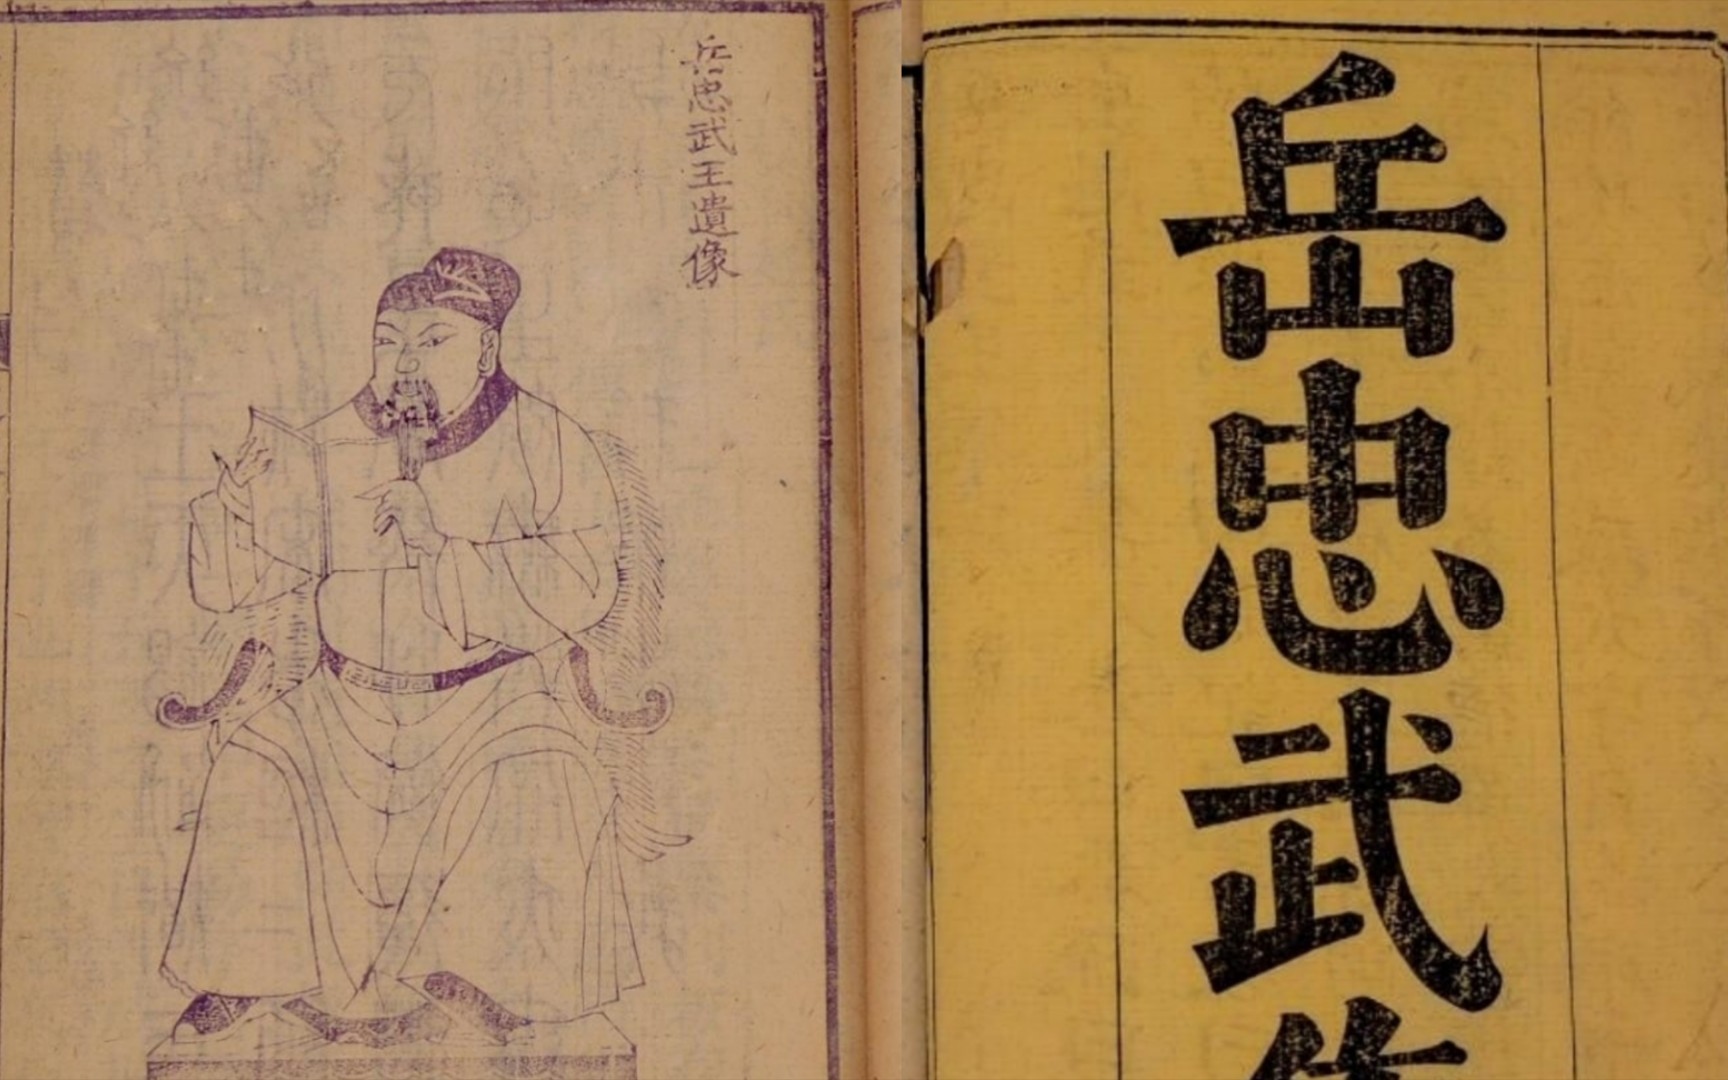 岳忠武王遺像
岳忠武